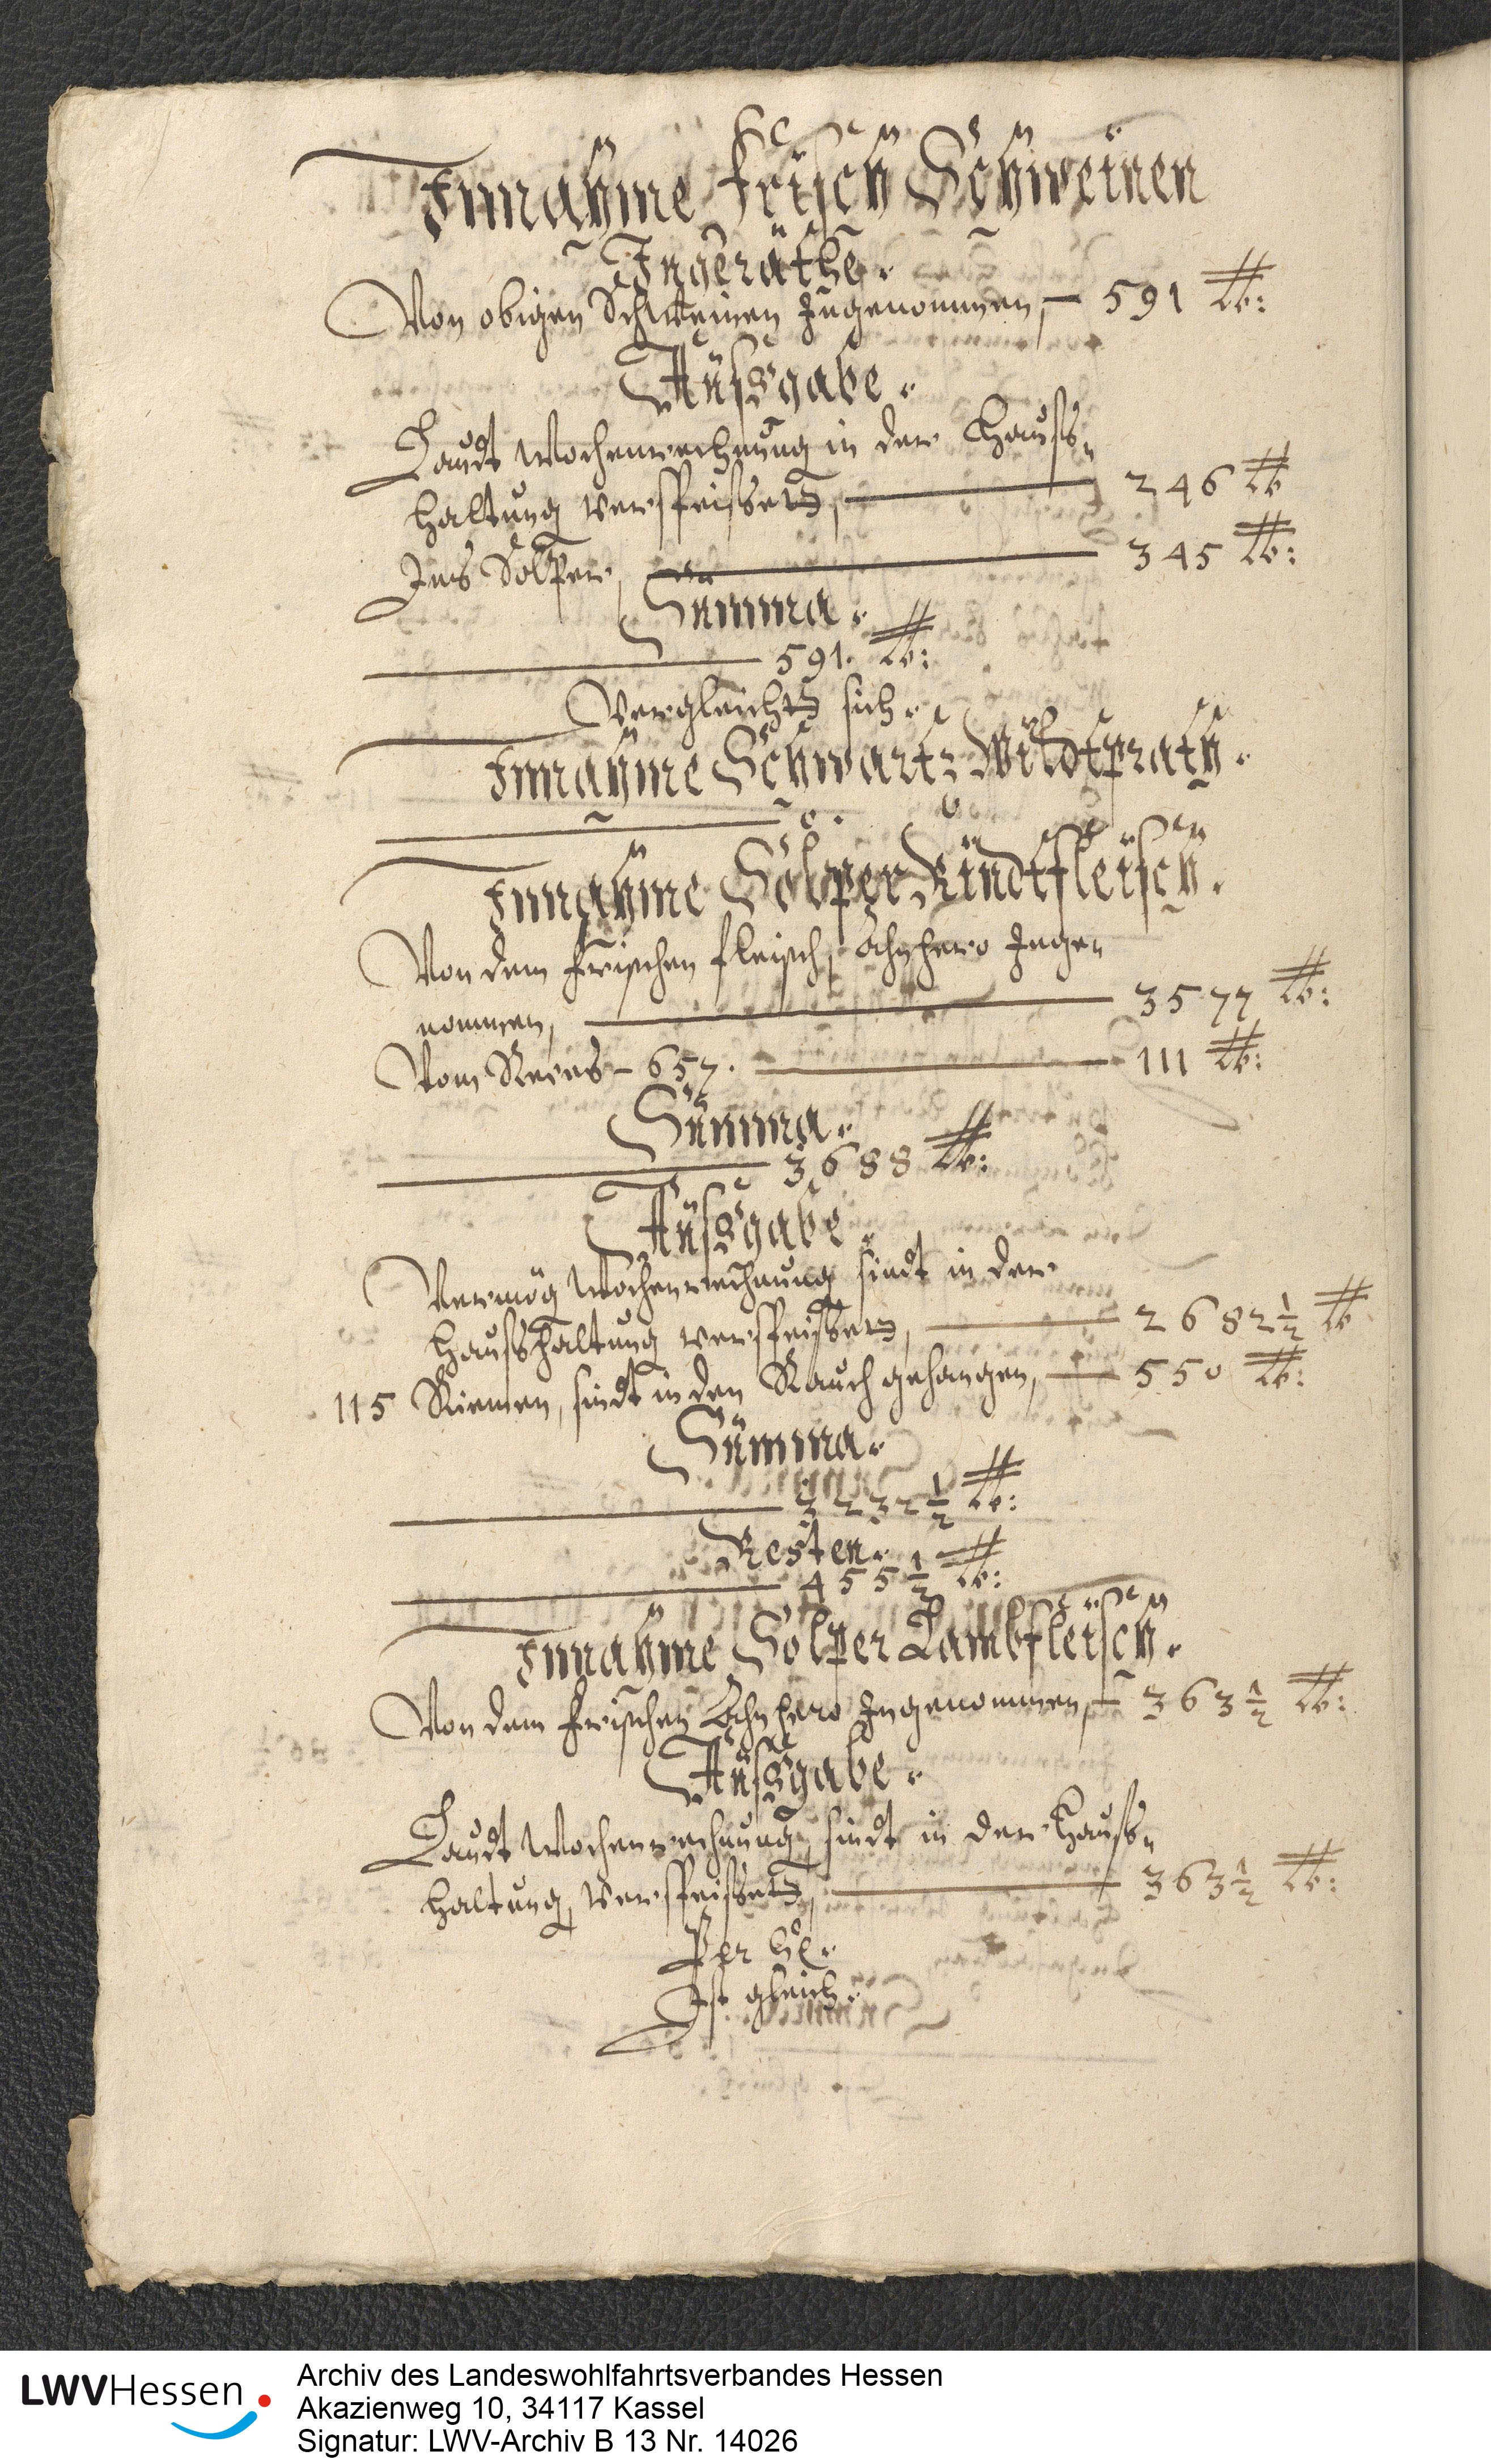 Innahme frisch Schweinen
Ingeräthe.
Von obigen Schweinen Ingenommen, 591 lb:
Außgabe.
Laudt Wochenrechnung in der Hauß-
haltung verspeisset, 246 lb
Ins Sölper, 345 lb:
Summa.
591. lb:
Vergleicht sich.
Innahme Schwartz Wildtprath.
0.
Innahme Sölper Rindtfleisch.
Von dem frischen fleisch, Inge-
nommen, 3577 lb:
Vom Reces 657. 111 lb:
Summa.
3688 lb:
Außgabe.
Vermög Wochenrechnung sindt in der
Haußhaltung verspeisset, 2682 1/2 lb
115 Riemen, sindt in den Rauch gehangen, 550 lb:
Summa.
3232 1/2 lb:
Resten.
455 1/2 lb:
Innahme Sölper Lambfleisch.
Von dem frischen Ingenommen, 363 1/2 lb:
Außgabe.
Laudt Wochenrechnung, sindt in der Hauß-
haltung verspeisset, 363 1/2 lb:
Per se.
Ist gleich.
LWVHessen
Archiv des Landeswohlfahrtsverbandes Hessen
Akazienweg 10, 34117 Kassel
Signatur: LWV-Archiv B 13 Nr. 14026